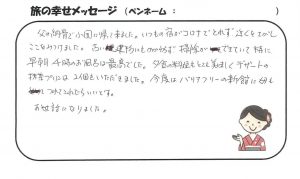 旅の幸せメッセージ（ペンネーム： ）
父の納骨で小国に帰て来ました。いつもの宿がコロナでとれず近くをさがし
ここをみつけました。古い建物にもかかわらず掃除が できていて特に
早朝4時のお風呂は最高でした。夕食のお料理もとても美味しくデザートの
抹茶プリンは2個もいただきました。今度はバリアフリーの新館に母も
つれてこれたらいいです。
お世話になりました。